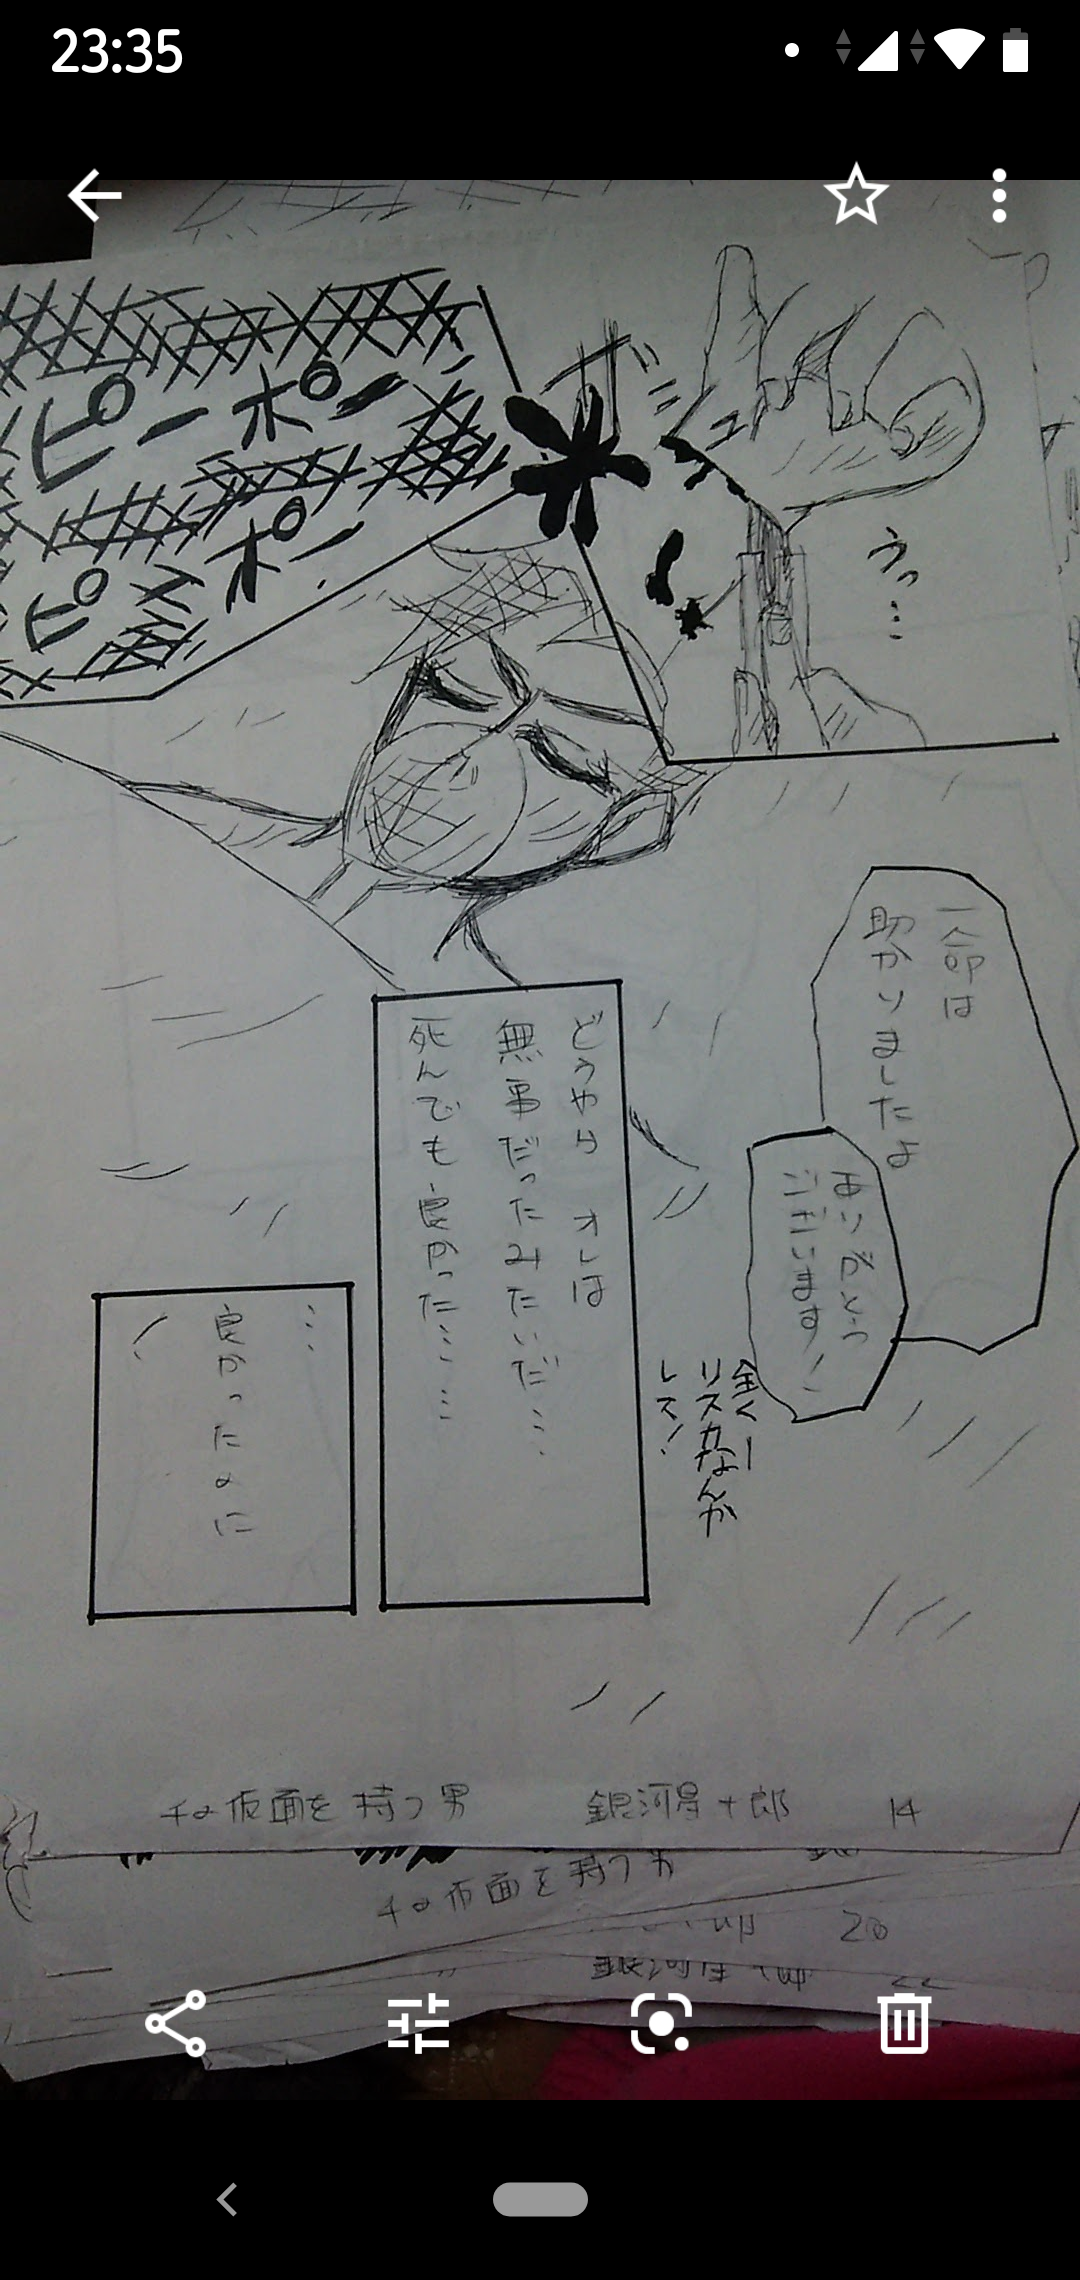 23:35
ザシュ
うっ…
ピーポー
ピーポー
一命は
助かりましたよ
ありがとう
ございます!
全くー
リスカなんか
レス!
どうやら オレは
無事だったみたいだ……
死んでも良かった……
…
良かったのに
千の仮面を持つ男 銀河星十郎 14
千の仮面を持つ男
20
銀河星
22